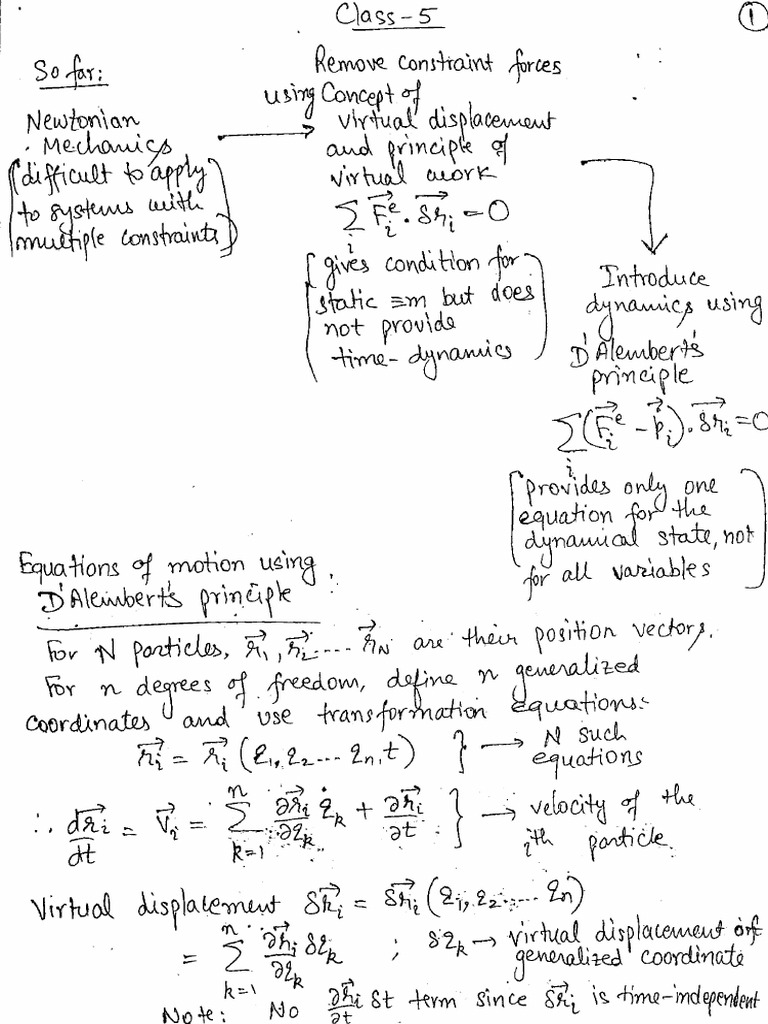 Class-5
1
So far:
Newtonian
Mechanics
(difficult to apply
to systems with
multiple constraints)
Remove constraint forces
using Concept of
virtual displacement
and principle of
virtual work
∑_i F⃗_i^e · δr⃗_i = 0
(gives condition for
static ≡m but does
not provide
time-dynamics)
Introduce
dynamics using
D'Alembert's
principle
∑_i (F⃗_i^e − ṗ⃗_i) · δr⃗_i = 0
(provides only one
equation for the
dynamical state, not
for all variables)
Equations of motion using
D'Alembert's principle :
For N particles, r⃗_1, r⃗_2 .... r⃗_N are their position vectors.
For n degrees of freedom, define n generalized
coordinates and use transformation equations:-
r⃗_i = r⃗_i (q_1, q_2 ... q_n, t) } → N such
equations
∴ dr⃗_i/dt = v⃗_i = ∑_{k=1}^{n} ∂r⃗_i/∂q_k q̇_k + ∂r⃗_i/∂t } → velocity of the
ith particle.
Virtual displacement δr⃗_i = δr⃗_i (q_1, q_2, .... q_n)
= ∑_{k=1}^{n} ∂r⃗_i/∂q_k δq_k ; δq_k → virtual displacement of
generalized coordinate
Note: No ∂r⃗_i/∂t δt term since δr⃗_i is time-independent